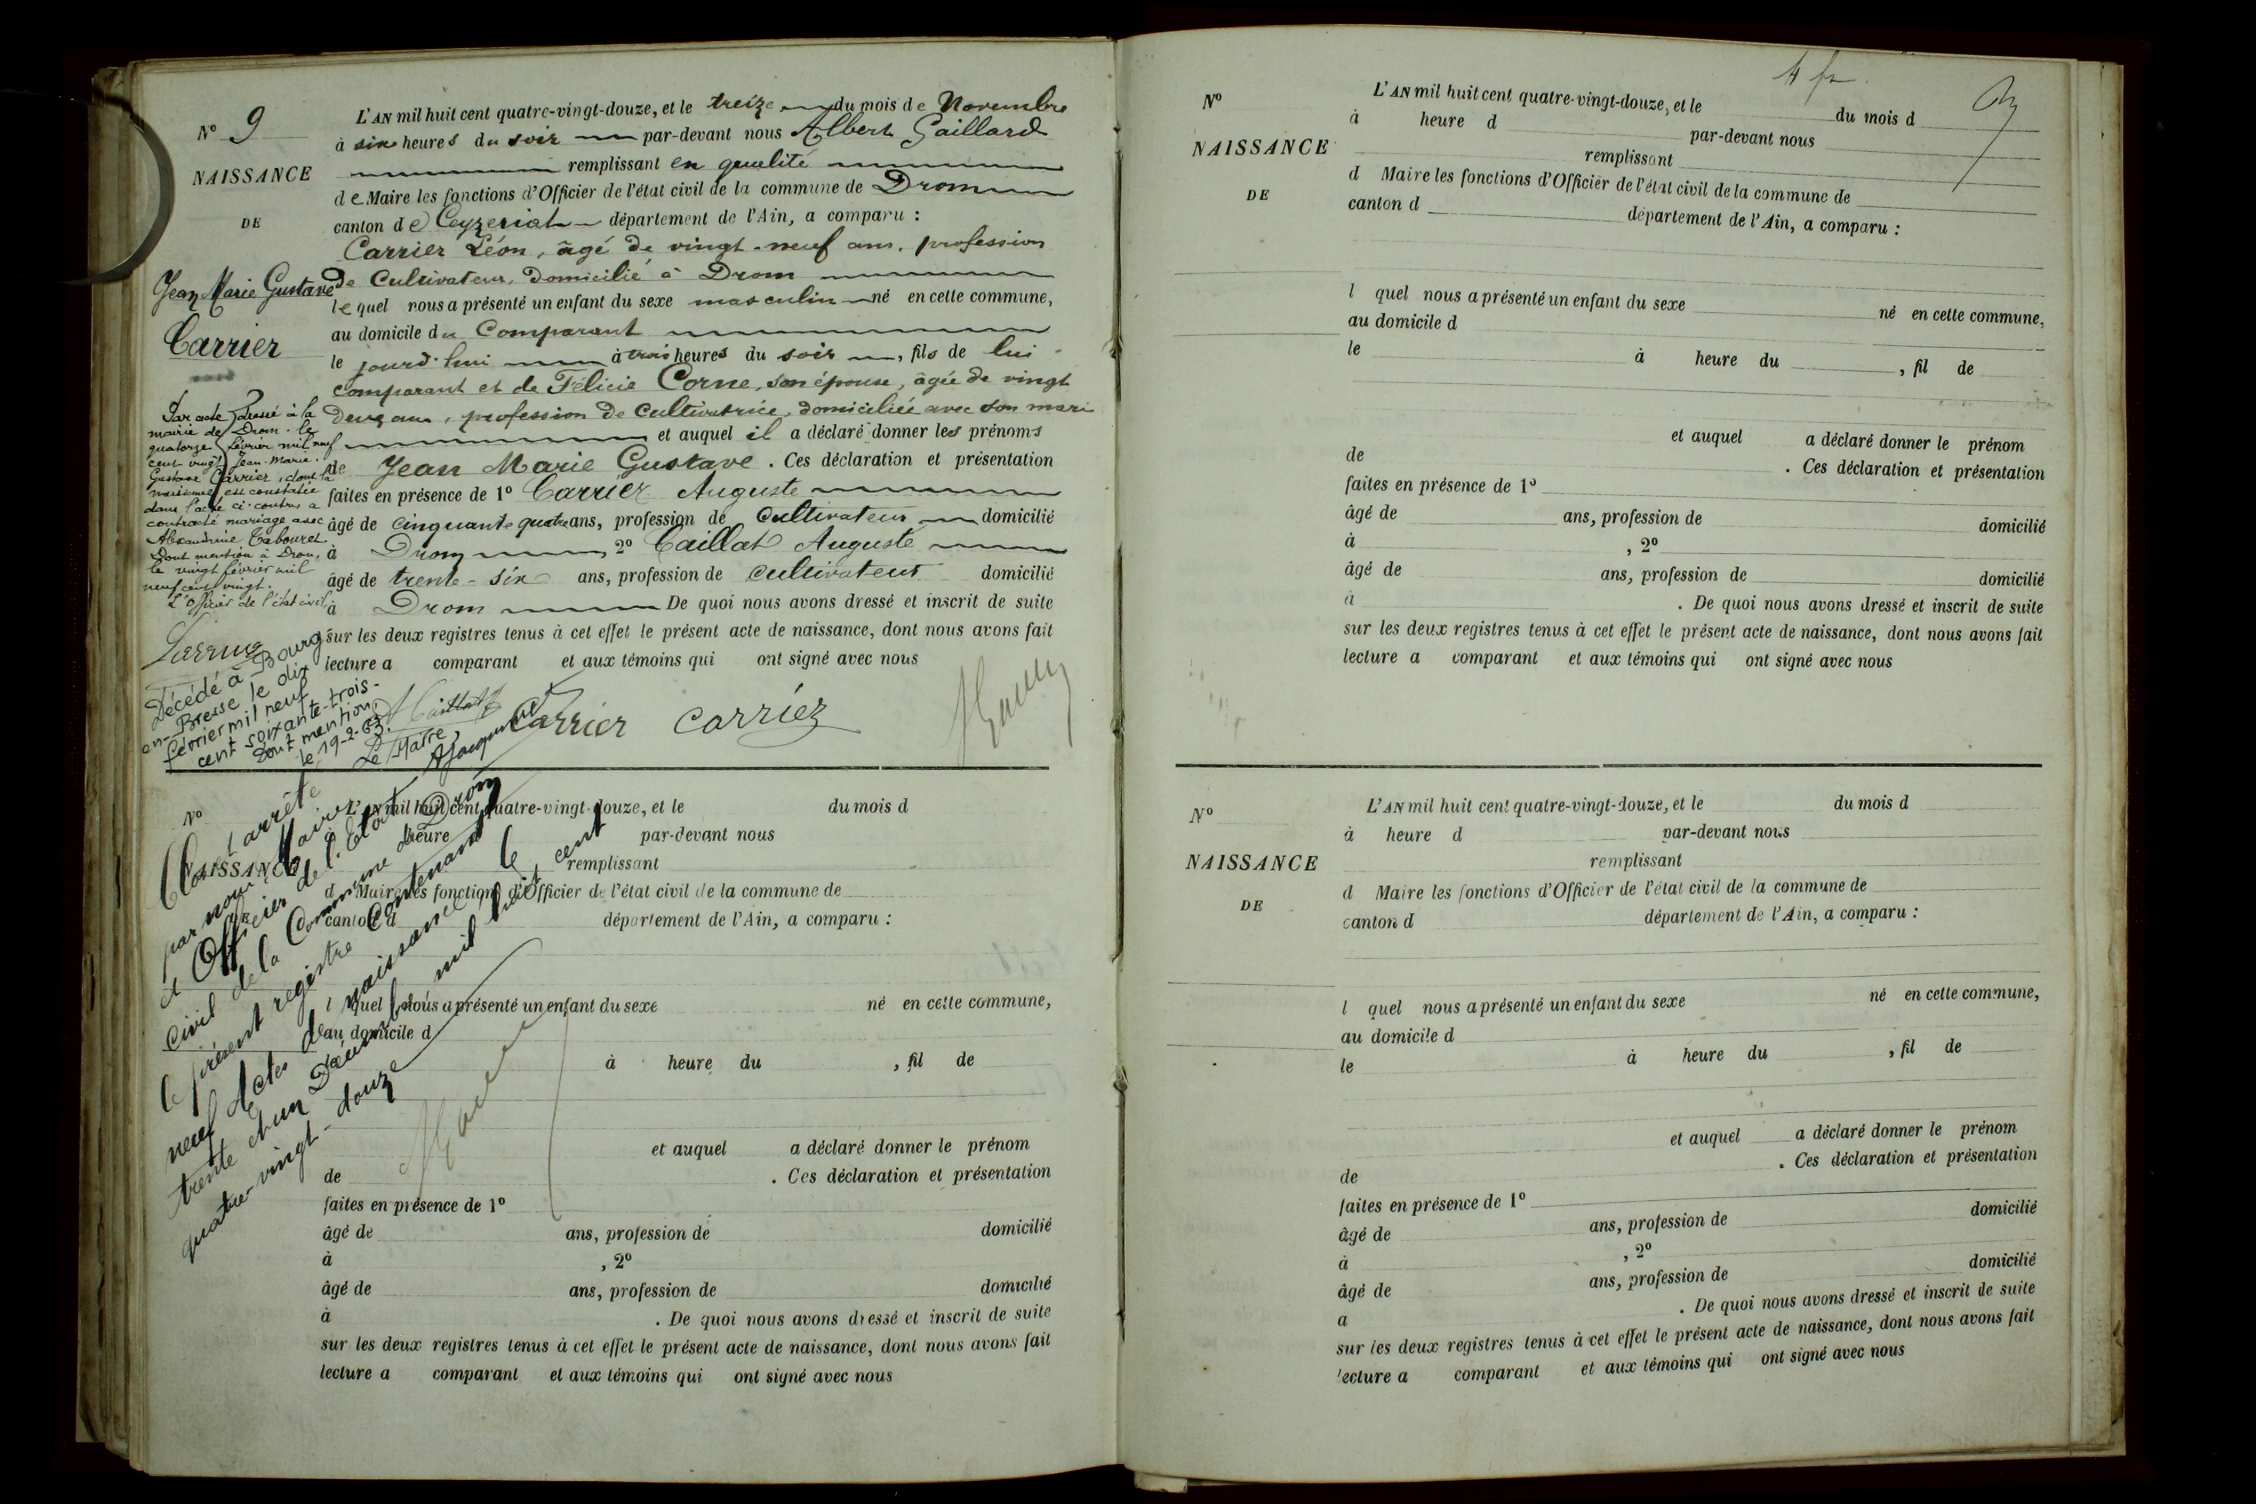 N° 9
NAISSANCE
DE
Jean Marie Gustave
Carrier
L'AN mil huit cent quatre-vingt-douze, et le treize du mois de Novembre
à six heures du soir par-devant nous Albert Gaillard
remplissant en qualité
de Maire les fonctions d'Officier de l'état civil de la commune de Drom
canton de Ceyzeriat département de l'Ain, a comparu :
Carrier Léon, âgé de vingt-neuf ans, profession
de Cultivateur, domicilié à Drom
lequel nous a présenté un enfant du sexe masculin né en cette commune,
au domicile du Comparant
le jourd'hui à trois heures du soir, fils de lui
comparant et de Félicie Corne, son épouse, âgée de vingt
deux ans, profession de Cultivatrice, domiciliée avec son mari
et auquel il a déclaré donner les prénoms
de Jean Marie Gustave. Ces déclaration et présentation
faites en présence de 1° Carrier Auguste
âgé de cinquante quatre ans, profession de Cultivateur domicilié
à Drom, 2° Caillat Auguste
âgé de trente-six ans, profession de cultivateur domicilié
à Drom De quoi nous avons dressé et inscrit de suite
sur les deux registres tenus à cet effet le présent acte de naissance, dont nous avons fait
lecture a comparant et aux témoins qui ont signé avec nous
Carrier Carrier
Par acte dressé à la
mairie de Drom le
quatorze février mil neuf
cent vingt Jean-Marie
Gustave Carrier, dont la
naissance est constatée
dans l'acte ci-contre, a
contracté mariage avec
Alexandrine Tabouret
Dont mention à Drom,
le vingt février mil
neuf cent vingt.
L'officier de l'état civil
Décédé à Bourg
en-Bresse le dix
février mil neuf
cent soixante-trois.
Dont mention,
le 19-2-63.
Le Maire,
N°
NAISSANCE
L'AN mil huit cent quatre-vingt-douze, et le du mois d
à heure d par-devant nous
remplissant
d Maire les fonctions d'Officier de l'état civil de la commune de
canton d département de l'Ain, a comparu :
l quel nous a présenté un enfant du sexe né en cette commune,
au domicile d
à heure du , fil de
et auquel a déclaré donner le prénom
de . Ces déclaration et présentation
faites en présence de 1°
âgé de ans, profession de domicilié
à , 2°
âgé de ans, profession de domicilié
à . De quoi nous avons dressé et inscrit de suite
sur les deux registres tenus à cet effet le présent acte de naissance, dont nous avons fait
lecture a comparant et aux témoins qui ont signé avec nous
Clos et arrêté
par nous Maire
et Officier de l'Etat
civil de la Commune de Drom
le présent registre contenant
neuf Actes de naissance, le
trente et un Décembre mil huit cent
quatre-vingt-douze
N°
NAISSANCE
DE
L'AN mil huit cent quatre-vingt-douze, et le du mois d
à heure d par-devant nous
remplissant
d Maire les fonctions d'Officier de l'état civil de la commune de
canton d département de l'Ain, a comparu :
l quel nous a présenté un enfant du sexe né en cette commune,
au domicile d
le à heure du , fil de
et auquel a déclaré donner le prénom
de . Ces déclaration et présentation
faites en présence de 1°
âgé de ans, profession de domicilié
à , 2°
âgé de ans, profession de domicilié
à . De quoi nous avons dressé et inscrit de suite
sur les deux registres tenus à cet effet le présent acte de naissance, dont nous avons fait
lecture a comparant et aux témoins qui ont signé avec nous
N°
NAISSANCE
DE
L'AN mil huit cent quatre-vingt-douze, et le du mois d
à heure d par-devant nous
remplissant
d Maire les fonctions d'Officier de l'état civil de la commune de
canton d département de l'Ain, a comparu :
l quel nous a présenté un enfant du sexe né en cette commune,
au domicile d
le à heure du , fil de
et auquel a déclaré donner le prénom
de . Ces déclaration et présentation
faites en présence de 1°
âgé de ans, profession de domicilié
à , 2°
âgé de ans, profession de domicilié
a . De quoi nous avons dressé et inscrit de suite
sur les deux registres tenus à cet effet le présent acte de naissance, dont nous avons fait
lecture a comparant et aux témoins qui ont signé avec nous